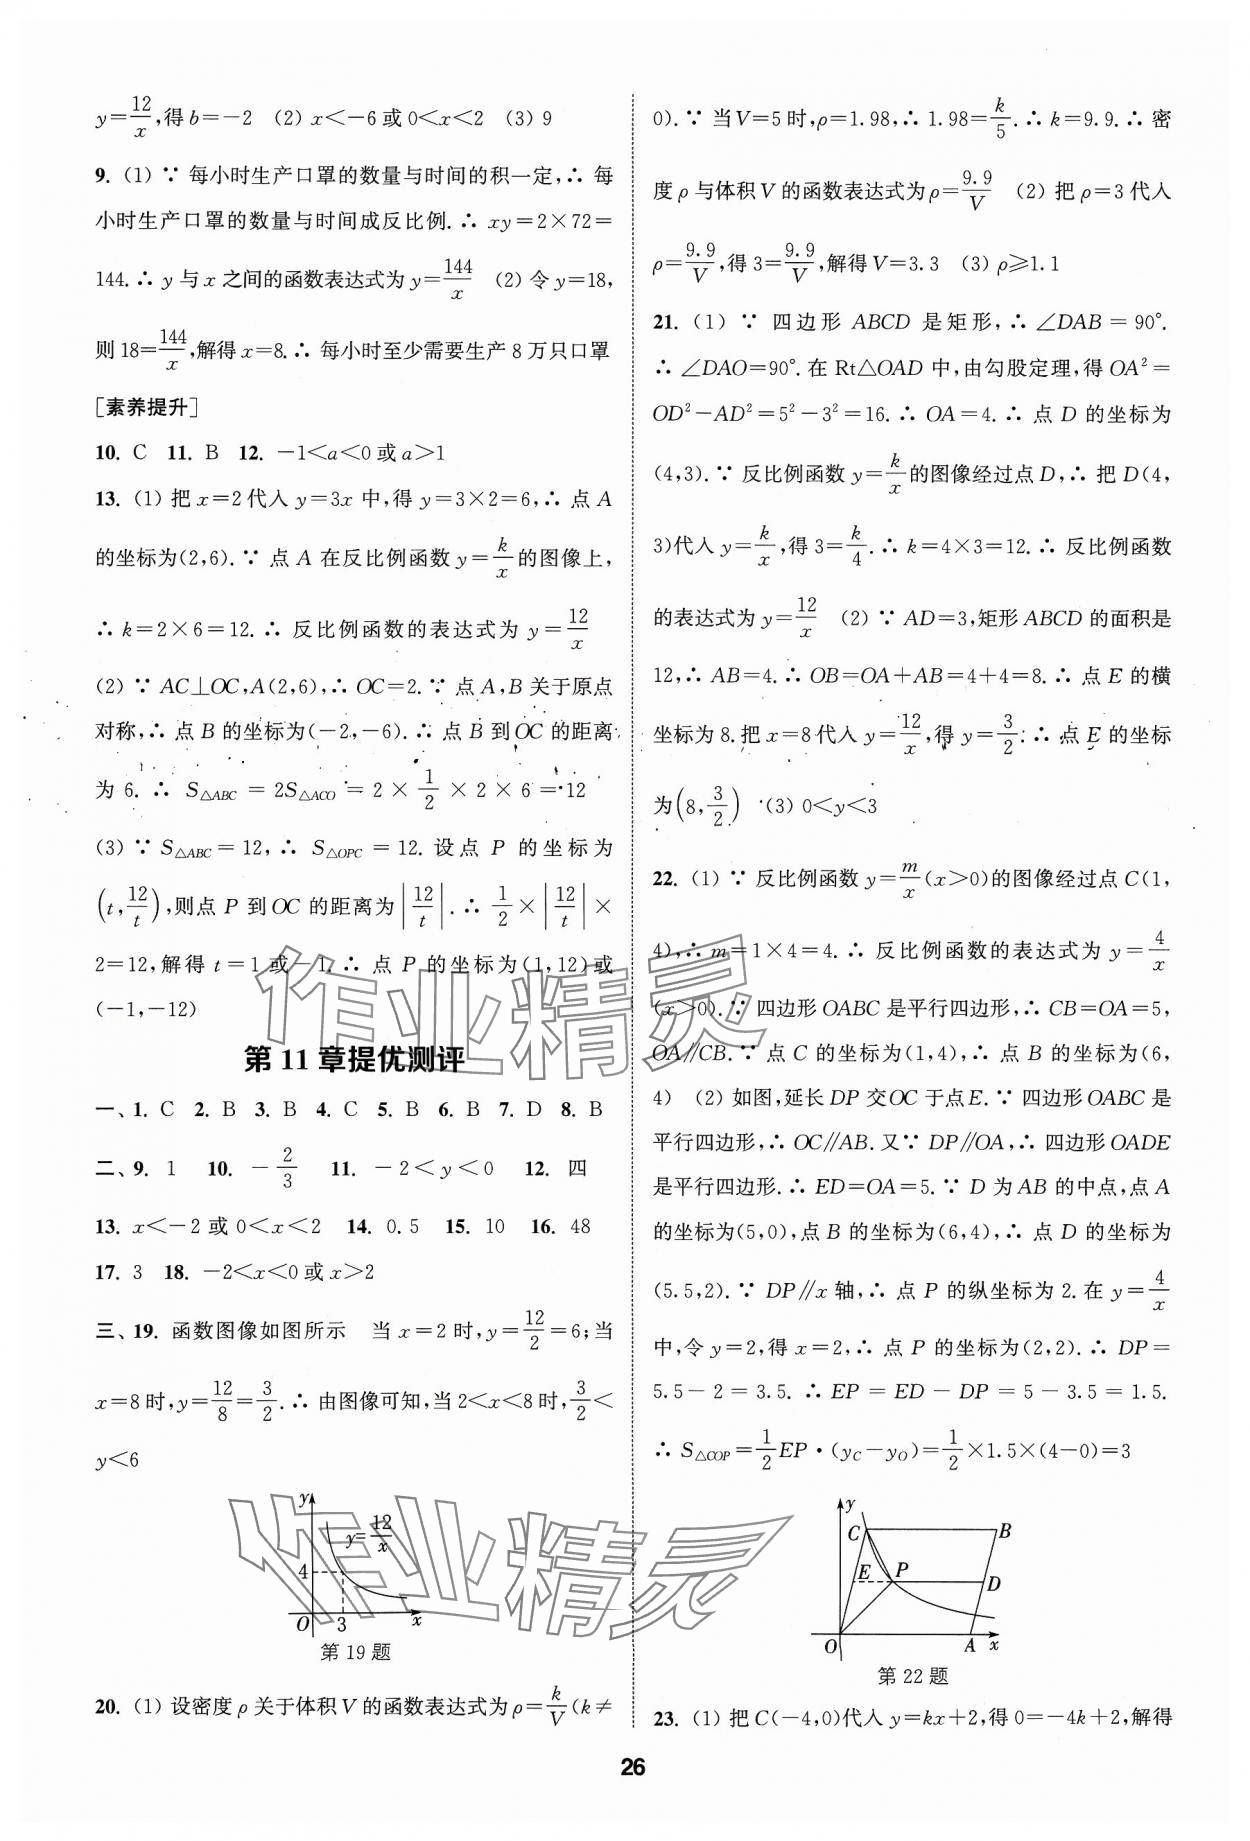 y=12/x,得b=-2 (2) x<-6或0<x<2 (3) 9
9. (1) ∵ 每小时生产口罩的数量与时间的积一定,∴ 每
小时生产口罩的数量与时间成反比例.∴ xy=2×72=
144.∴ y 与 x 之间的函数表达式为 y=144/x (2) 令 y=18,
则 18=144/x,解得 x=8.∴ 每小时至少需要生产 8 万只口罩
[素养提升]
10. C 11. B 12. -1<a<0 或 a>1
13. (1) 把 x=2 代入 y=3x 中,得 y=3×2=6,∴ 点 A
的坐标为(2,6).∵ 点 A 在反比例函数 y=k/x 的图像上,
∴ k=2×6=12.∴ 反比例函数的表达式为 y=12/x
(2) ∵ AC⊥OC,A(2,6),∴ OC=2.∵ 点 A,B 关于原点
对称,∴ 点 B 的坐标为(-2,-6).∴ 点 B 到 OC 的距离
为 6.∴ S△ABC=2S△ACO=2×1/2×2×6=12
(3) ∵ S△ABC=12,∴ S△OPC=12.设点 P 的坐标为
(t,12/t),则点 P 到 OC 的距离为|12/t|.∴ 1/2×|12/t|×
2=12,解得 t=1 或-1.∴ 点 P 的坐标为(1,12)或
(-1,-12)
第 11 章提优测评
一、1. C 2. B 3. B 4. C 5. B 6. B 7. D 8. B
二、9. 1 10. -2/3 11. -2<y<0 12. 四
13. x<-2 或 0<x<2 14. 0.5 15. 10 16. 48
17. 3 18. -2<x<0 或 x>2
三、19. 函数图像如图所示 当 x=2 时,y=12/2=6;当
x=8 时,y=12/8=3/2.∴ 由图像可知,当 2<x<8 时,3/2<
y<6
y
y=12/x
4
O 3 x
第 19 题
20. (1) 设密度 ρ 关于体积 V 的函数表达式为 ρ=k/V(k≠
0).∵ 当 V=5 时,ρ=1.98,∴ 1.98=k/5.∴ k=9.9.∴ 密
度 ρ 与体积 V 的函数表达式为 ρ=9.9/V (2) 把 ρ=3 代入
ρ=9.9/V,得 3=9.9/V,解得 V=3.3 (3) ρ≥1.1
21. (1) ∵ 四边形 ABCD 是矩形,∴ ∠DAB=90°.
∴ ∠DAO=90°.在 Rt△OAD 中,由勾股定理,得 OA²=
OD²-AD²=5²-3²=16.∴ OA=4.∴ 点 D 的坐标为
(4,3).∵ 反比例函数 y=k/x 的图像经过点 D,∴ 把 D(4,
3)代入 y=k/x,得 3=k/4.∴ k=4×3=12.∴ 反比例函数
的表达式为 y=12/x (2) ∵ AD=3,矩形 ABCD 的面积是
12,∴ AB=4.∴ OB=OA+AB=4+4=8.∴ 点 E 的横
坐标为 8.把 x=8 代入 y=12/x,得 y=3/2.∴ 点 E 的坐标
为(8,3/2) (3) 0<y<3
22. (1) ∵ 反比例函数 y=m/x(x>0)的图像经过点 C(1,
4),∴ m=1×4=4.∴ 反比例函数的表达式为 y=4/x
(x>0).∵ 四边形 OABC 是平行四边形,∴ CB=OA=5,
OA∥CB.∵ 点 C 的坐标为(1,4),∴ 点 B 的坐标为(6,
4) (2) 如图,延长 DP 交 OC 于点 E.∵ 四边形 OABC 是
平行四边形,∴ OC∥AB.又∵ DP∥OA,∴ 四边形 OADE
是平行四边形.∴ ED=OA=5.∵ D 为 AB 的中点,点 A
的坐标为(5,0),点 B 的坐标为(6,4),∴ 点 D 的坐标为
(5.5,2).∵ DP∥x 轴,∴ 点 P 的纵坐标为 2.在 y=4/x
中,令 y=2,得 x=2,∴ 点 P 的坐标为(2,2).∴ DP=
5.5-2=3.5.∴ EP=ED-DP=5-3.5=1.5.
∴ S△COP=1/2EP·(yC-yO)=1/2×1.5×(4-0)=3
y
C B
E P D
O A x
第 22 题
23. (1) 把 C(-4,0)代入 y=kx+2,得 0=-4k+2,解得
26
作业精灵
作业精灵